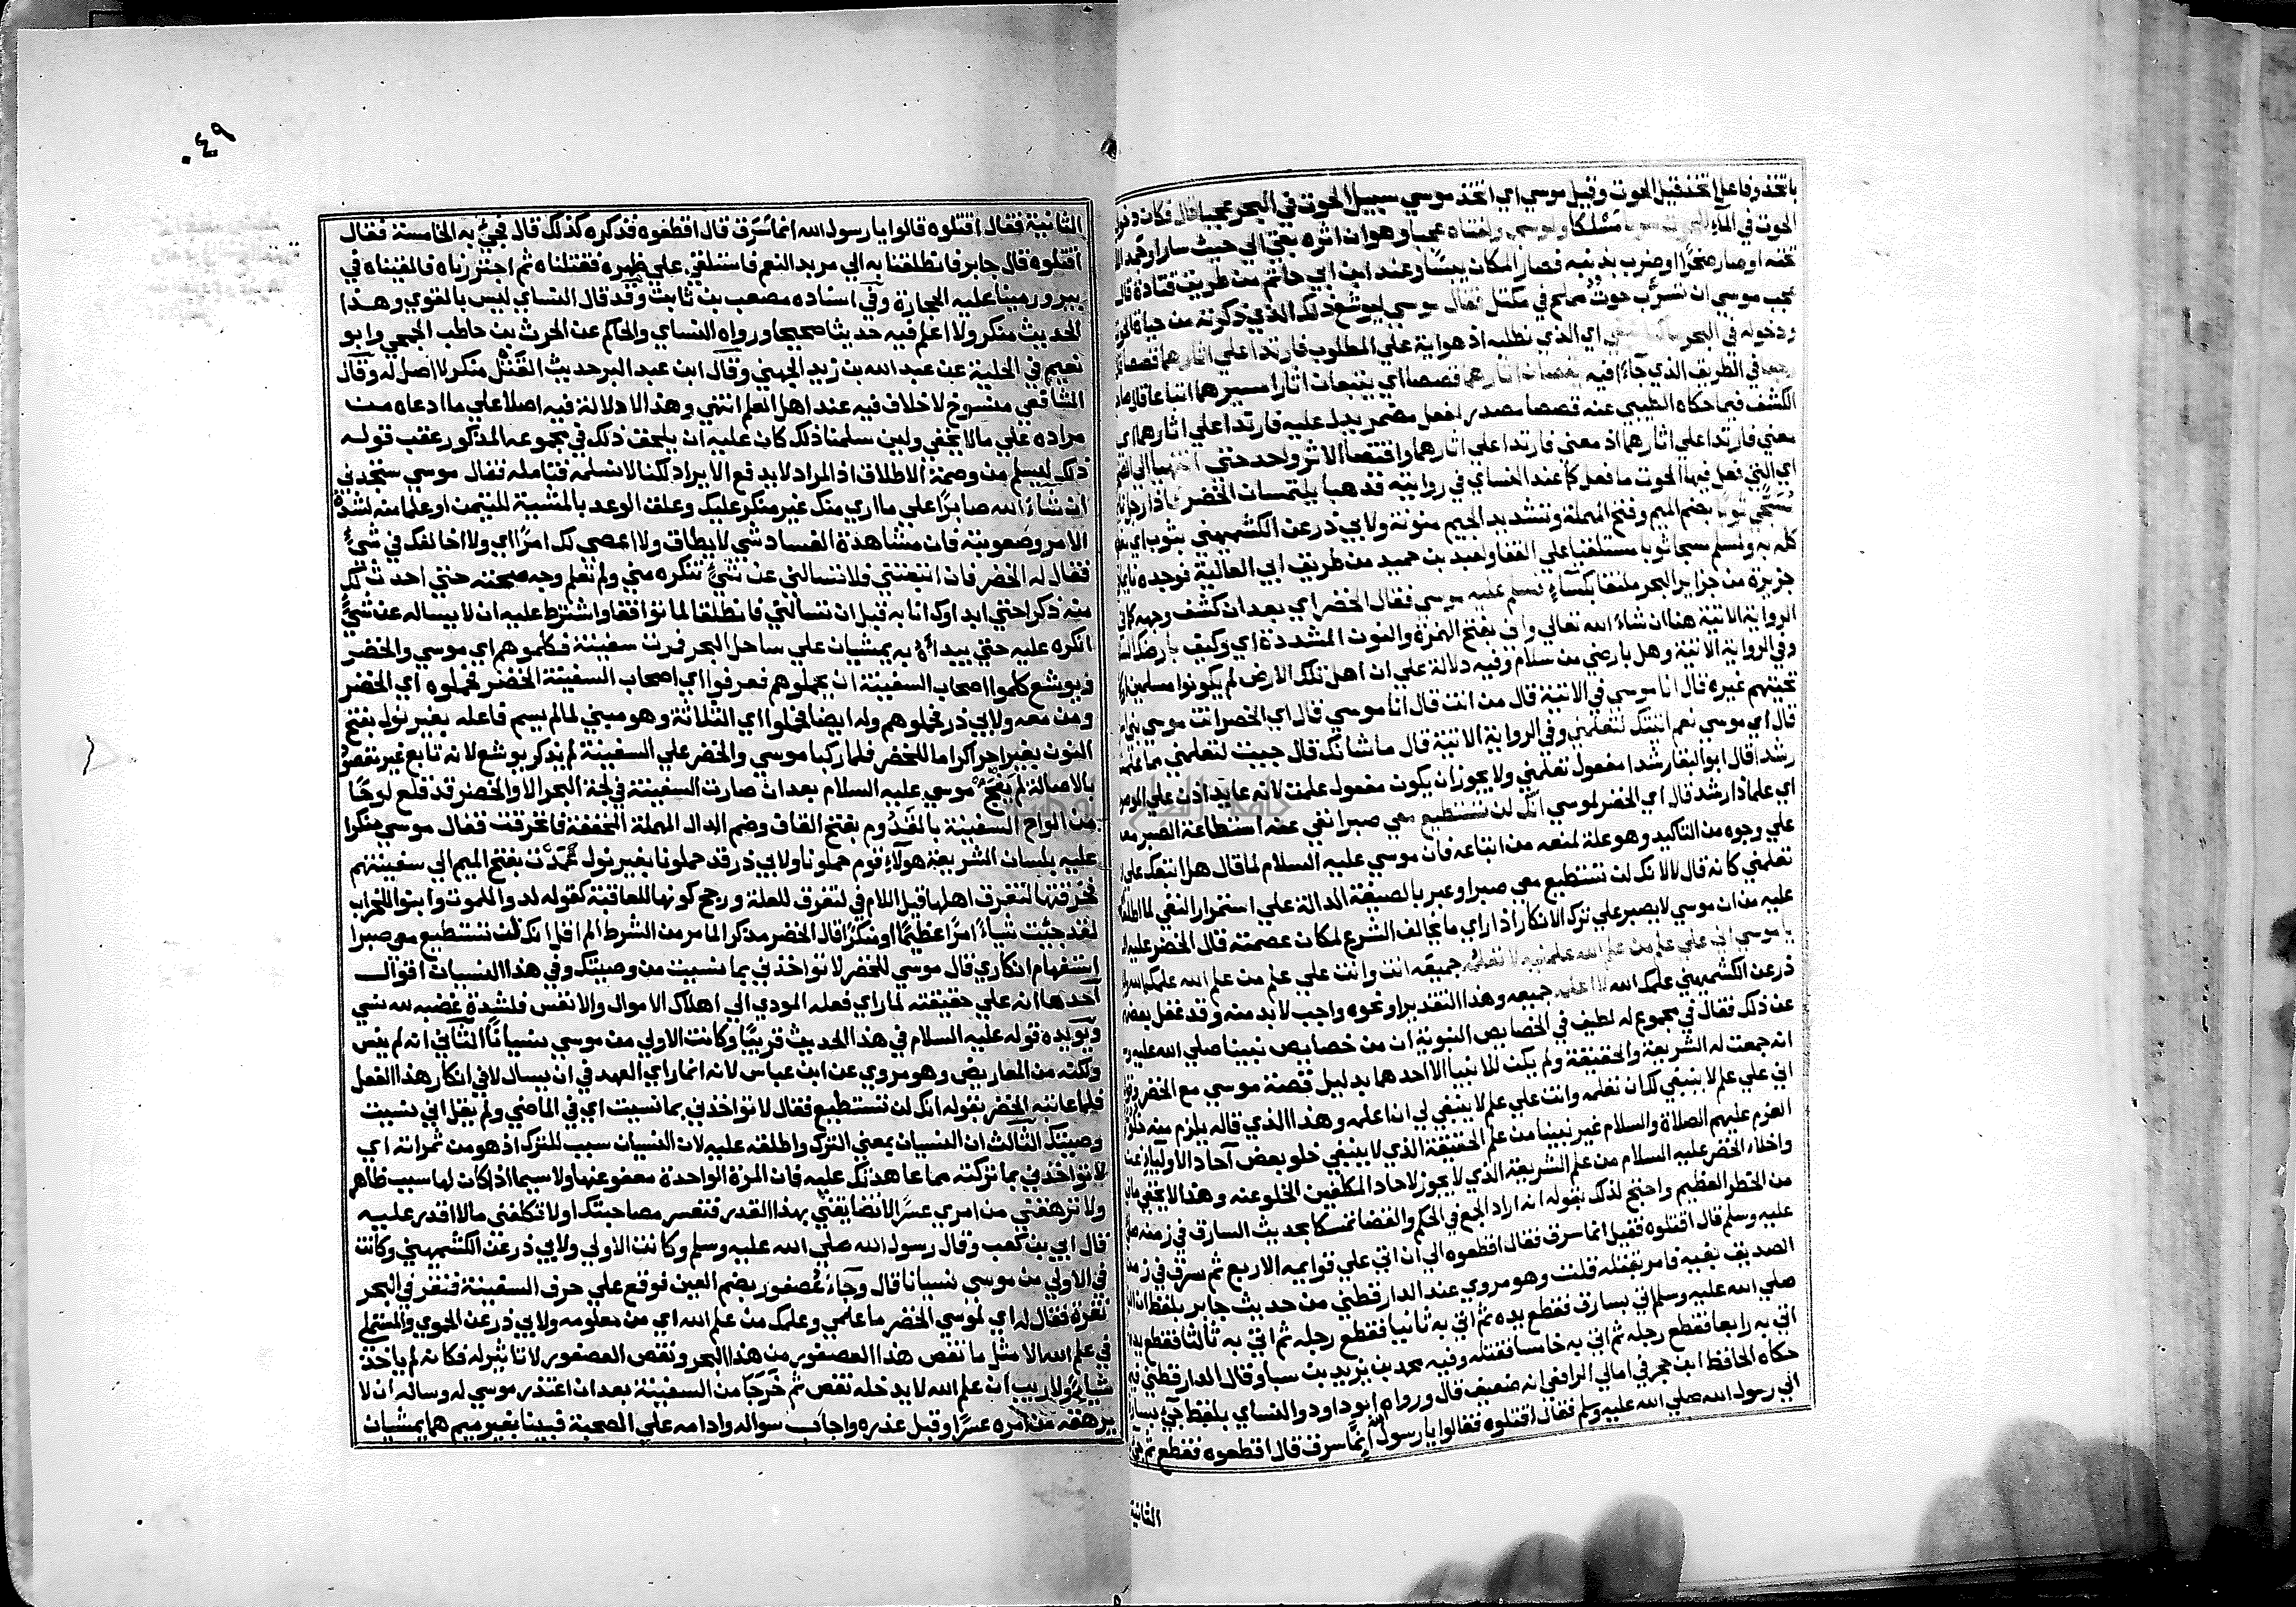 باتخذ وفاعل اتخذ قيل الحوت وقيل موسي اي اتخذ موسي سبيل الحوت في البحر عجبا قال فكان دخول
الحوت في الماء مسلكا ولموسي ولفتاه عجبا وهو ان اثره بقي الي حيث سار او جمد
تحته او صار صخرا او ضرب بذنبه فصار المكان يبسا وعند ابن ابي حاتم من طريق قتادة قال
عجب موسي ان تسرب حوت مملح في مكتل فقال موسي ليوشع ذلك الذي ذكرته من حياة الحوت
ودخوله في البحر اي الذي نطلبه اذ هو اية علي المطلوب فارتدا علي اثارهما قصصا
في الطريق الذي جاءا فيه يقصان اثارهما قصصا اي يتبعان اثار مسيرهما اتباعا قال
الكشف فيما حكاه الطيبي عنه قصصا مصدر لفعل مضمر يدل عليه فارتدا علي اثارهما اي
معني فارتدا علي اثارهما اذ معني فارتدا علي اثارهما واقتصا الاثر واحد حتي انتهيا الي
اي التي فعل فيها الحوت ما فعل كما عند النساي في روايته فذهبا يلتمسان الخضر فاذا رجل
مسجي ثوبا بضم الميم وفتح المهملة وتشديد الجيم منونة ولابي ذر عن الكشميهني بثوب اي
كله به ولمسلم مسجا ثوبا مستلقيا علي القفا ولعبد بن حميد من طريق ابي العالية فوجده
جزيرة من جزاير البحر ملتفا بكساء فسلم عليه موسي فقال الخضر اي بعد ان كشف وجهه كما في
الرواية الاتية هنا ان شاء الله تعالي واني بفتح الهمزة والنون المشددة اي وكيف بارضك
وفي الرواية الاتية وهل بارضي من سلام وفيه دلالة علي ان اهل تلك الارض لم يكونوا مسلمين
تحيتهم غيره قال انا موسي في الاتية قال من انت قال انا موسي قال اي الخضر انت موسي بني
قال اي موسي نعم اتيتك لتعلمني وفي الرواية الاتية قال ما شانك قال جيت لتعلمني مما علمت
رشدا قال ابو البقا رشدا مفعول تعلمني ولا يجوز ان يكون مفعول علمت لانه لا عايد اذن علي الموصول
اي علما ذا رشد قال اي الخضر لموسي انك لن تستطيع معي صبرا نفي عنه استطاعة الصبر
علي وجوه من التاكيد وهو علة لمنعه من اتباعه فان موسي عليه السلام لما قال هل اتبعك علي
تعلمني كانه قال لا لانك لن تستطيع معي صبرا وعبر بالصيغة الدالة علي استمرار النفي لما اطلعه
عليه من ان موسي لا يصبر علي ترك الانكار اذا راي ما يخالف الشرع لمكان عصمته قال الخضر عليه
يا موسي اني علي علم من علم الله علمنيه لا تعلمه جميعه انت وانت علي علم من علم الله علمك الله
ذر عن الكشميهني علمك الله لا اعلمه جميعه وهذا التقدير او نحوه واجب لا بد منه وقد غفل بعضهم
عن ذلك فقال في مجموع له لطيف في الخصايص النبوية ان من خصايص نبينا صلي الله عليه
انه جمعت له الشريعة والحقيقة ولم يكن للانبيا الا احدهما بدليل قصة موسي مع الخضر
اني علي علم لا ينبغي لك ان تعلمه وانت علي علم لا ينبغي لي ان اعلمه وهذا الذي قاله يلزم منه خلو
العزم عليهم الصلاة والسلام غير نبينا من علم الحقيقة الذي لا ينبغي خلو بعض آحاد الاولياء عنه
واخلاء الخضر عليه السلام من علم الشريعة الذي لا يجوز لاحاد المكلفين الخلو عنه وهذا لا يخفي ما فيه
من الخطر العظيم واحتج لذلك بقوله انه اراد الجمع في الحكم والقضا تمسكا بحديث السارق في زمنه
عليه وسلم قال اقتلوه فقيل انما سرق فقال اقطعوه الي ان اتي علي قوايمه الاربع ثم سرق في زمن
الصديق بفيه فامر بقتله قلت وهو مروي عند الدارقطني من حديث جابر بلفظ ان
صلي الله عليه وسلم اتي بسارق فقطع يده ثم اتي به ثانيا فقطع رجله ثم اتي به ثالثا فقطع يده
اتي به رابعا فقطع رجله ثم اتي به خامسا فقتله وفيه محمد بن يزيد بن سبا وقال الدارقطني
حكاه الحافظ ابن حجر في امالي الرافعي انه ضعيف قال ورواه ابو داود والنساي بلفظ جي
الي رسول الله صلي الله عليه وسلم فقال اقتلوه فقالوا يا رسول الله انما سرق قال اقطعوه فقطع ثم
الثانية
٠٤٩
الثانية فقال اقتلوه قالوا يا رسول الله انما سرق قال اقطعوه فذكره كذلك قال فجئ به الخامسة فقال
اقتلوه قال جابر فانطلقنا به الي مربد النعم فاستلقي علي ظهره فقتلناه ثم اجتررناه فالقيناه في
بير ورمينا عليه الحجارة وفي اسناده مصعب بن ثابت وقد قال النساي ليس بالقوي وهذا
الحديث منكر ولا اعلم فيه حديثا صحيحا ورواه النساي والحاكم عن الحرث بن حاطب الجمحي وابو
نعيم في الحلية عن عبد الله بن زيد الجهني وقال ابن عبد البر حديث القتل منكر لا اصل له وقال
الشافعي منسوخ لا خلاف فيه عند اهل العلم انتهي وهذا لا دلالة فيه اصلا علي ما ادعاه من
مراده علي ما لا يخفي ولين سلمنا ذلك كان عليه ان يلحق ذلك في مجموعه المذكور عقب قوله
ذلك ليسلم من وصمة الاطلاق اذ المراد لا يدفع الايراد لكنا لا نسلمه فتامله فقال موسي ستجدني
ان شاء الله صابرا علي ما اري منك غير منكر عليك وعلق الوعد بالمشية للتيمن او علما منه لشدة
الامر وصعوبته فان مشاهدة الفساد شي لا يطاق ولا اعصي لك امرا اي ولا اخالفك في شئ
فقال له الخضر فان اتبعتني فلا تسالني عن شئ تنكره مني ولم تعلم وجه صحته حتي احدث لك
منه ذكرا حتي ابداوك انا به قبل ان تسالني فانطلقا لما توافقا واشترط عليه ان لا يساله عن شئ
انكره عليه حتي يبدأه به يمشيان علي ساحل البحر فمرت سفينة فكلموهم اي موسي والخضر
ويوشع كلموا اصحاب السفينة ان يحملوهم فعرفوا اي اصحاب السفينة الخضر فحملوه اي الخضر
ومن معه ولابي ذر فحملوهم وله ايضا فحملوا اي الثلاثة وهو مبني لما لم يسم فاعله بغير نول بفتح
النون بغير اجر اكراما للخضر فلما ركبا موسي والخضر علي السفينة لم يذكر يوشع لانه تابع غير مقصود
بالاصالة لم يفجأ موسي عليه السلام بعد ان صارت السفينة في لجة البحر الا والخضر قد قلع لوحا
من الواح السفينة بالقدوم بفتح القاف وضم الدال المهملة المخففة فانخرقت فقال موسي منكرا
عليه بلسان الشريعة هولاء قوم حملونا ولابي ذر قد حملونا بغير نول عمدت بفتح الميم الي سفينتهم
فخرقتها لتغرق اهلها قيل اللام في لتغرق للعلة ورجح كونها للعاقبة كقوله لدوا للموت وابنوا للخراب
لقد جئت شياء امرا عظيما او منكرا قال الخضر مذكرا لما مر من الشرط الم اقل انك لن تستطيع معي صبرا
استفهام انكاري قال موسي للخضر لا تواخذني بما نسيت من وصيتك وفي هذا النسيان اقوال
احدها انه علي حقيقته لما راي فعله المودي الي اهلاك الاموال والانفس فلشدة غضبه لله نسي
ويويده قوله عليه السلام في هذا الحديث قريبا وكانت الاولي من موسي نسيانا الثاني انه لم ينس
ولكنه من المعاريض وهو مروي عن ابن عباس لانه انما راي العهد في ان يسال لا في انكار هذا الفعل
فلما عاتبه الخضر بقوله انك لن تستطيع فقال لا تواخذني بما نسيت اي في الماضي ولم يقل اني نسيت
وصيتك الثالث ان النسيان بمعني الترك واطلقه عليه لان النسيان سبب للترك اذ هو من ثمراته اي
لا تواخذني بما تركته مما عاهدتك عليه فان المرة الواحدة معفو عنها ولا سيما اذا كان لها سبب ظاهر
ولا ترهقني من امري عسرا لا تضايقني بهذا القدر فتعسر مصاحبتك او لا تكلفني ما لا اقدر عليه
قال ابي بن كعب وقال رسول الله صلي الله عليه وسلم وكانت الاولي ولابي ذر عن الكشميهني وكانت
في الاولي من موسي نسيانا قال وجاء عصفور بضم العين فوقع علي حرف السفينة فنقر في البحر
نقرة فقال له اي لموسي الخضر ما علمي وعلمك من علم الله اي من معلومه ولابي ذر عن الحموي والمستملي
في علم الله الا مثل ما نقص هذا العصفور من هذا البحر ونقص العصفور لا تاثير له فكانه لم ياخذ
شيا ولا ريب ان علم الله لا يدخله نقص ثم خرجا من السفينة بعد ان اعتذر موسي له وساله ان لا
يرهقه من امره عسرا وقبل عذره واجاب سواله وادامه علي الصحبة فبينا بغير ميم هما يمشيان